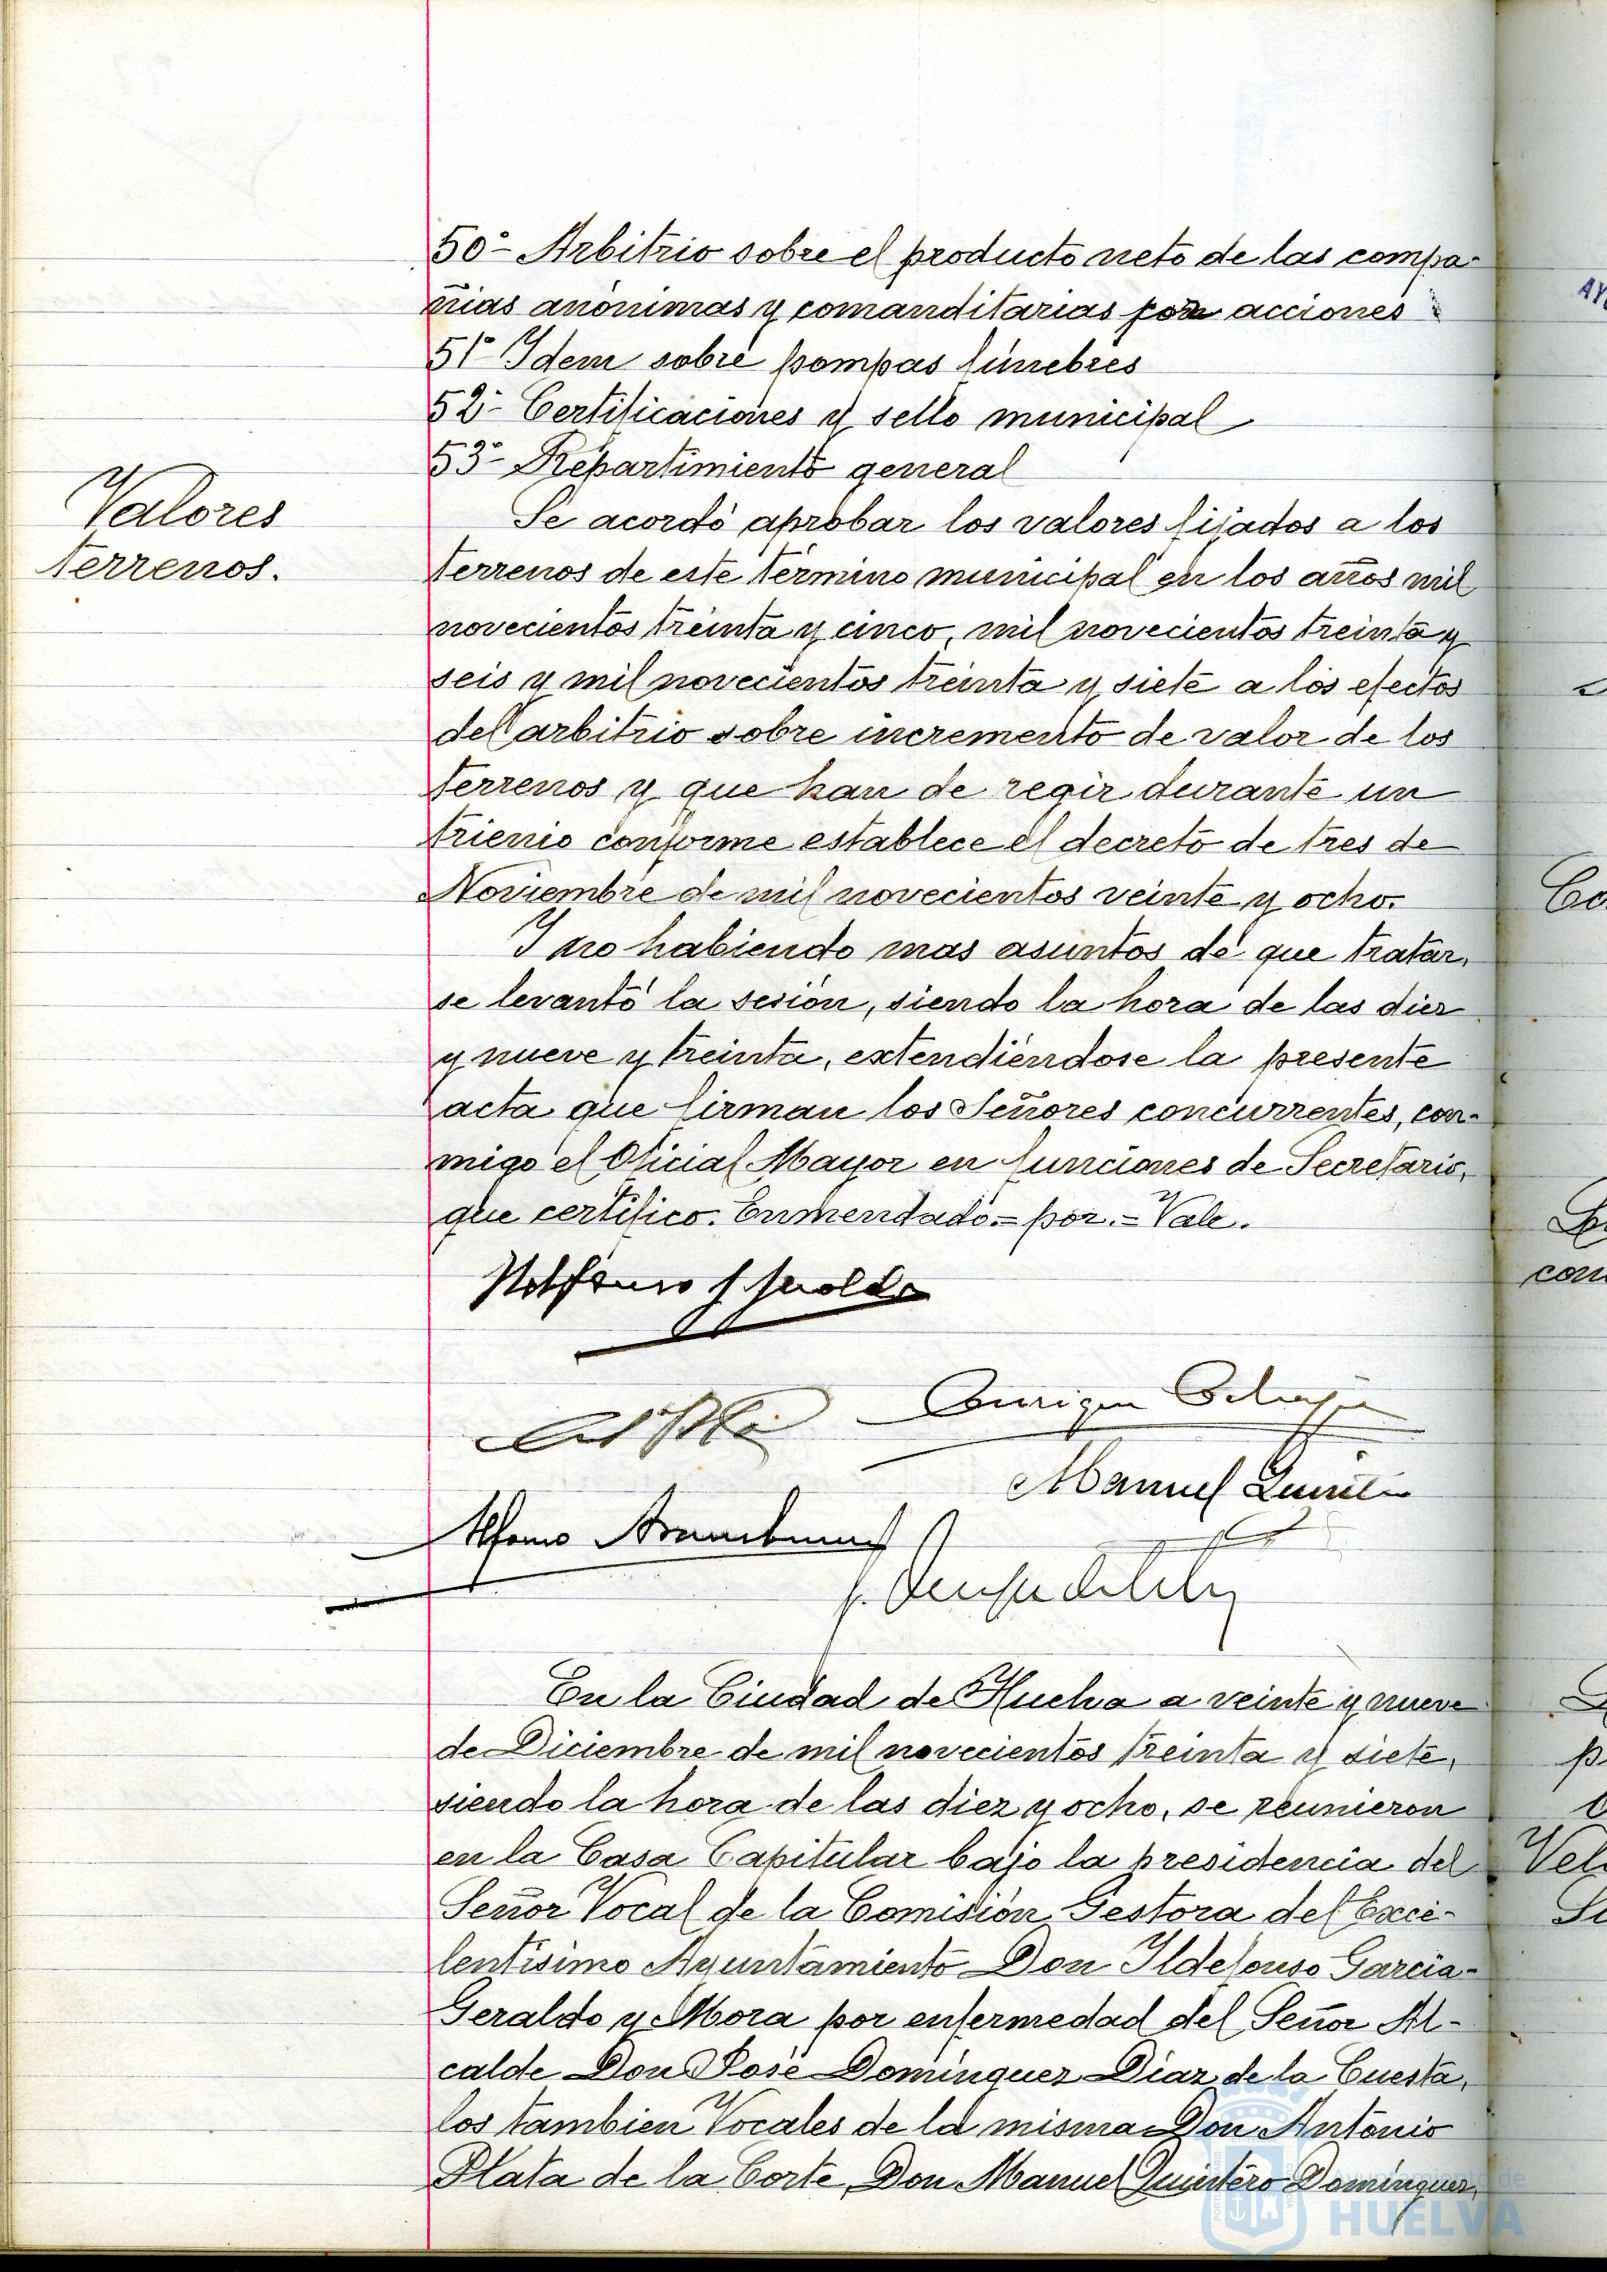 50º- Arbitrio sobre el producto neto de las compa-
ñias anónimas y comanditarias por acciones
51º- Idem sobre pompas fúnebres
52º- Certificaciones y sello municipal
53º- Repartimiento general
Valores
terrenos.
Se acordó aprobar los valores fijados a los
terrenos de este término municipal en los años mil
novecientos treinta y cinco, mil novecientos treinta y
seis y mil novecientos treinta y siete a los efectos
del arbitrio sobre incremento de valor de los
terrenos y que han de regir durante un
trienio conforme establece el decreto de tres de
Noviembre de mil novecientos veinte y ocho.
Y no habiendo mas asuntos de que tratar,
se levantó la sesión, siendo la hora de las diez
y nueve y treinta, extendiéndose la presente
acta que firman los Señores concurrentes, con-
migo el Oficial Mayor en funciones de Secretario,
que certifico. Enmendado.=por.=Vale.
Manuel
Alfonso
En la Ciudad de Huelva a veinte y nueve
de Diciembre de mil novecientos treinta y siete,
siendo la hora de las diez y ocho, se reunieron
en la Casa Capitular bajo la presidencia del
Señor Vocal de la Comisión Gestora del Exce-
lentísimo Ayuntamiento Don Ildefonso García-
Geraldo y Mora por enfermedad del Señor Al-
calde Don José Domínguez Díaz de la Cuesta,
los tambien Vocales de la misma Don Antonio
Plata de la Corte, Don Manuel Quintero Domínguez,
Ayuntamiento de
HUELVA